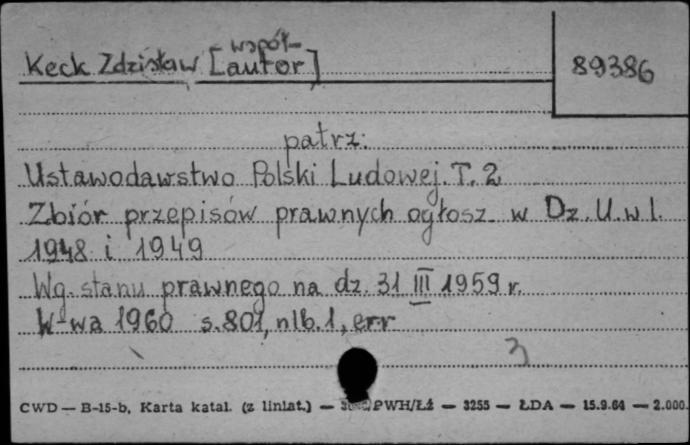 współ-
Keck Zdzisław [autor]
89386
patrz:
Ustawodawstwo Polski Ludowej. T. 2
Zbiór przepisów prawnych ogłosz. w Dz. U. w l.
1948 i 1949
Wg. stanu prawnego na dz. 31 III 1959 r.
W-wa 1960 s. 801, nlb. 1, err
3
CWD — B-15-b, Karta katal. (z liniat.) — PWH/Łź — 3255 — ŁDA — 15.9.64 — 2.000.